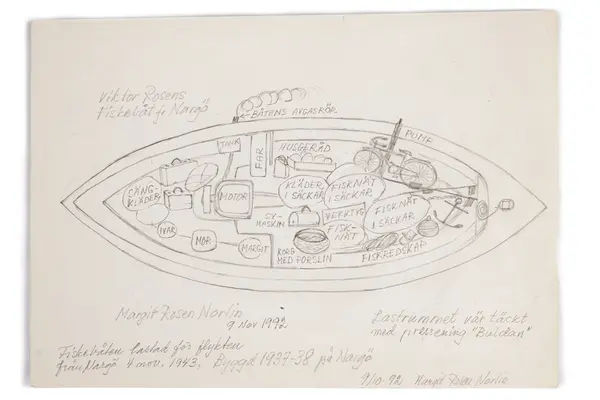 Viktor Rosens
Fiskebåt fr Nargö
BÅTENS AVGASRÖR
TANK
FAR
HUSGERÅD
PUMP
SÄNG-
KLÄDER
MOTOR
KLÄDER
I SÄCKAR
FISKNÄT
I SÄCKAR
SY-
MASKIN
VERKTYG
FISK-
NÄT
FISKNÄT
I SÄCKAR
IVAR
MOR
MARGIT
KORG
MED PORSLIN
FISKREDSKAP
Margit Rosen Norlin
9 Nov 1992
Lastrummet var täckt
med pressening "Buldan"
Fiskebåten lastad för flykten
från Nargö 4 nov. 1943, Byggd 1937-38 på Nargö
9/10 92 Margit Rosen Norlin